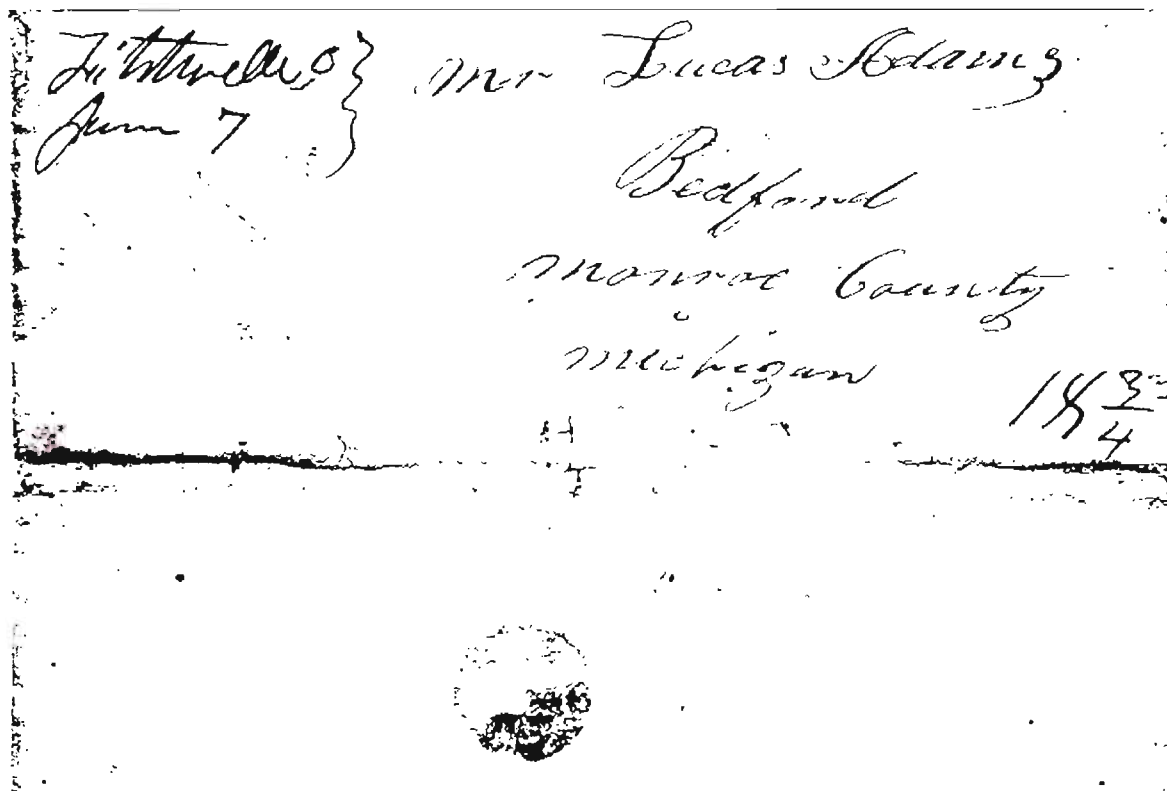 June 7
Mr Lucas Adams
Bedford
Monroe County
Michigan
18 3/4